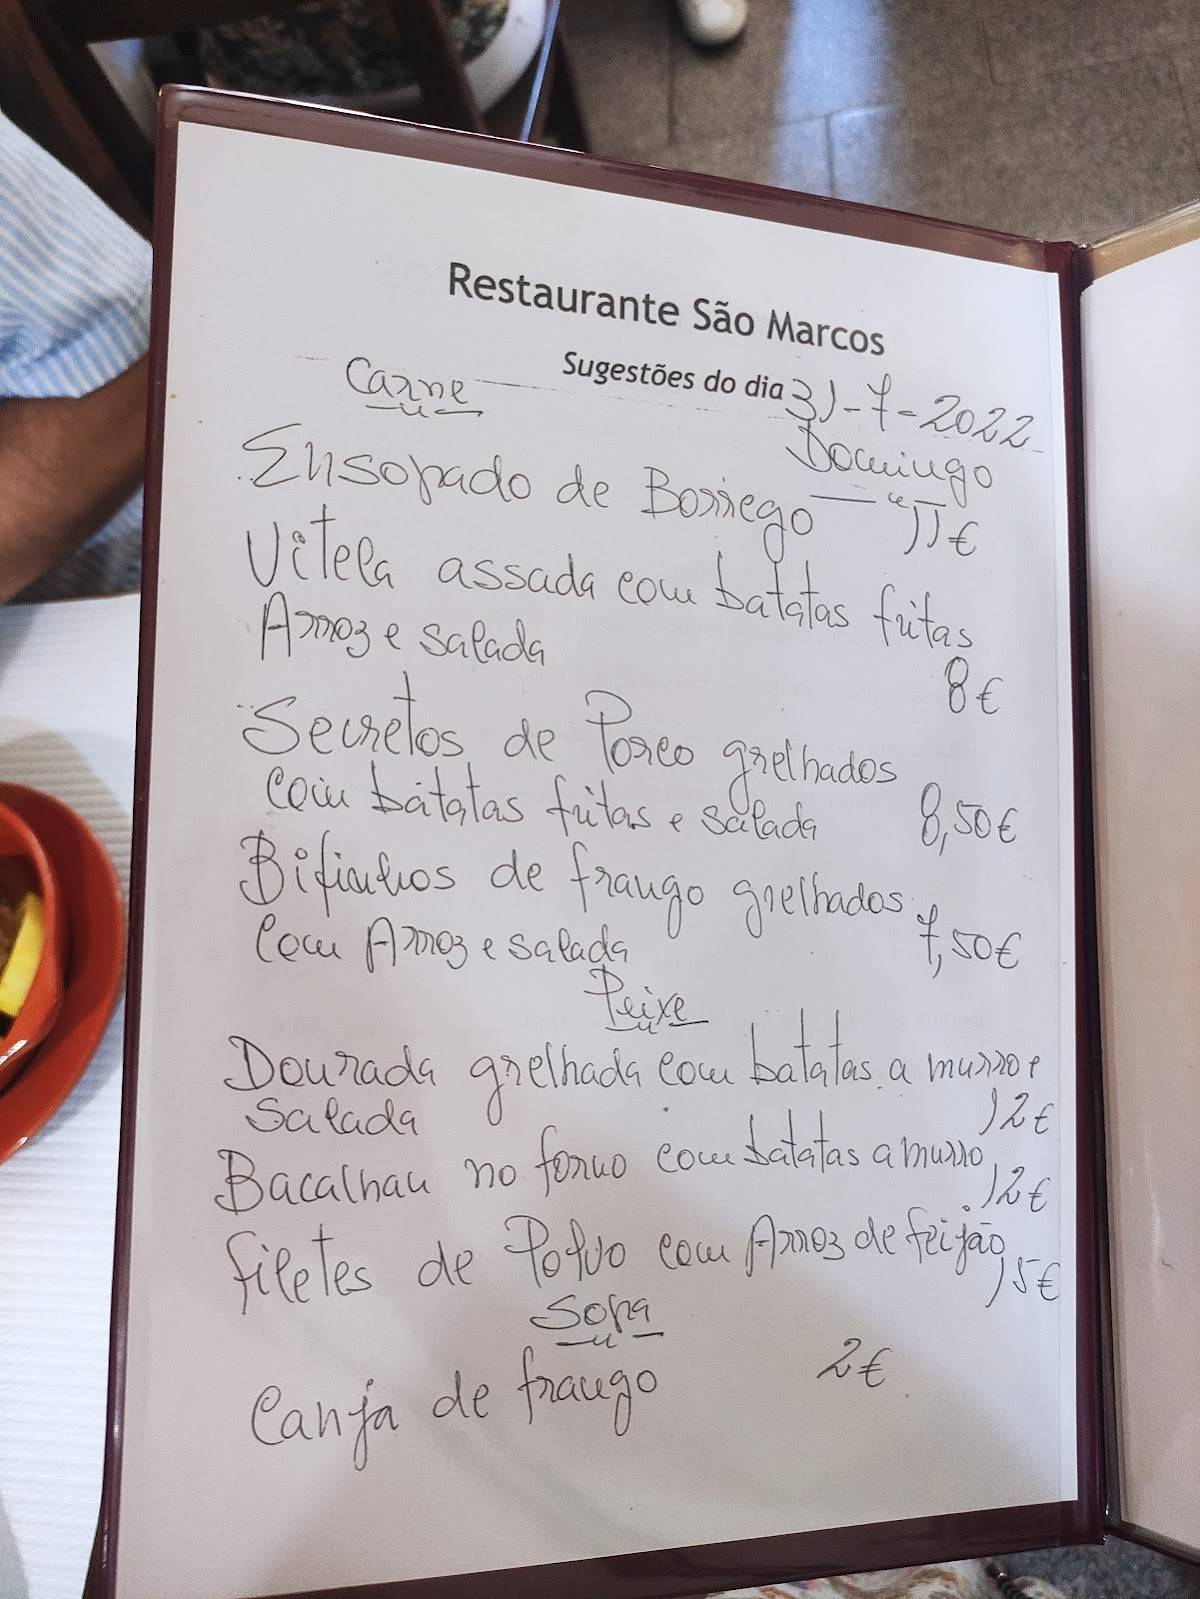 Restaurante São Marcos
Sugestões do dia 31-7-2022
Carne
Domingo
Ensopado de Borrego 11€
Vitela assada com batatas fritas
Arroz e salada
8€
Secretos de Porco grelhados
com batatas fritas e salada 8,50€
Bifinhos de frango grelhados
com Arroz e salada 7,50€
Peixe
Dourada grelhada com batatas a murro e
salada 12€
Bacalhau no forno com batatas a murro 12€
filetes de Polvo com Arroz de feijão 15€
Sopa
Canja de frango 2€